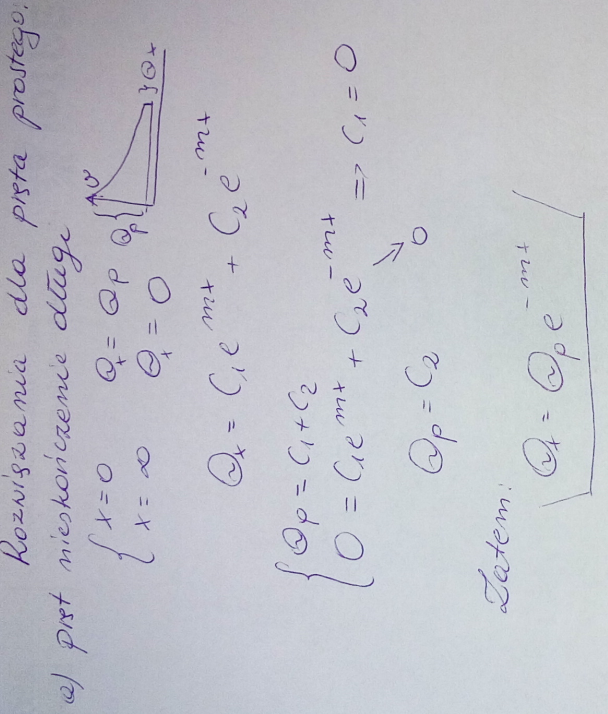 Rozwiązania dla pręta prostego.
a) pręt nieskończenie długi
{ x=0 Θx = Θp
{ x=∞ Θx = 0
ϑ Θp { } Θx
Θx = C₁e^mx + C₂e^-mx
{ Θp = C₁+C₂
{ 0 = C₁e^mx + C₂e^-mx => C₁ = 0
↘ 0
Θp = C₂
Zatem:
Θx = Θp e^-mx